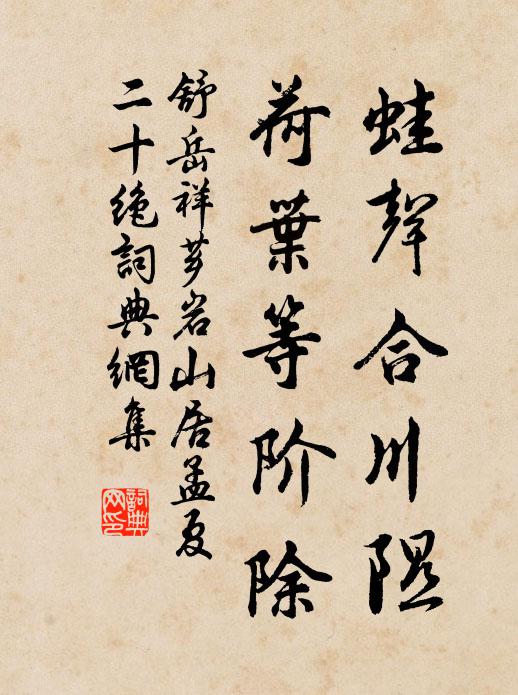 蛙聲合川隰
荷葉等阶除
舒岳祥芗岩山居孟夏
二十絶詞典網集
詞典网印